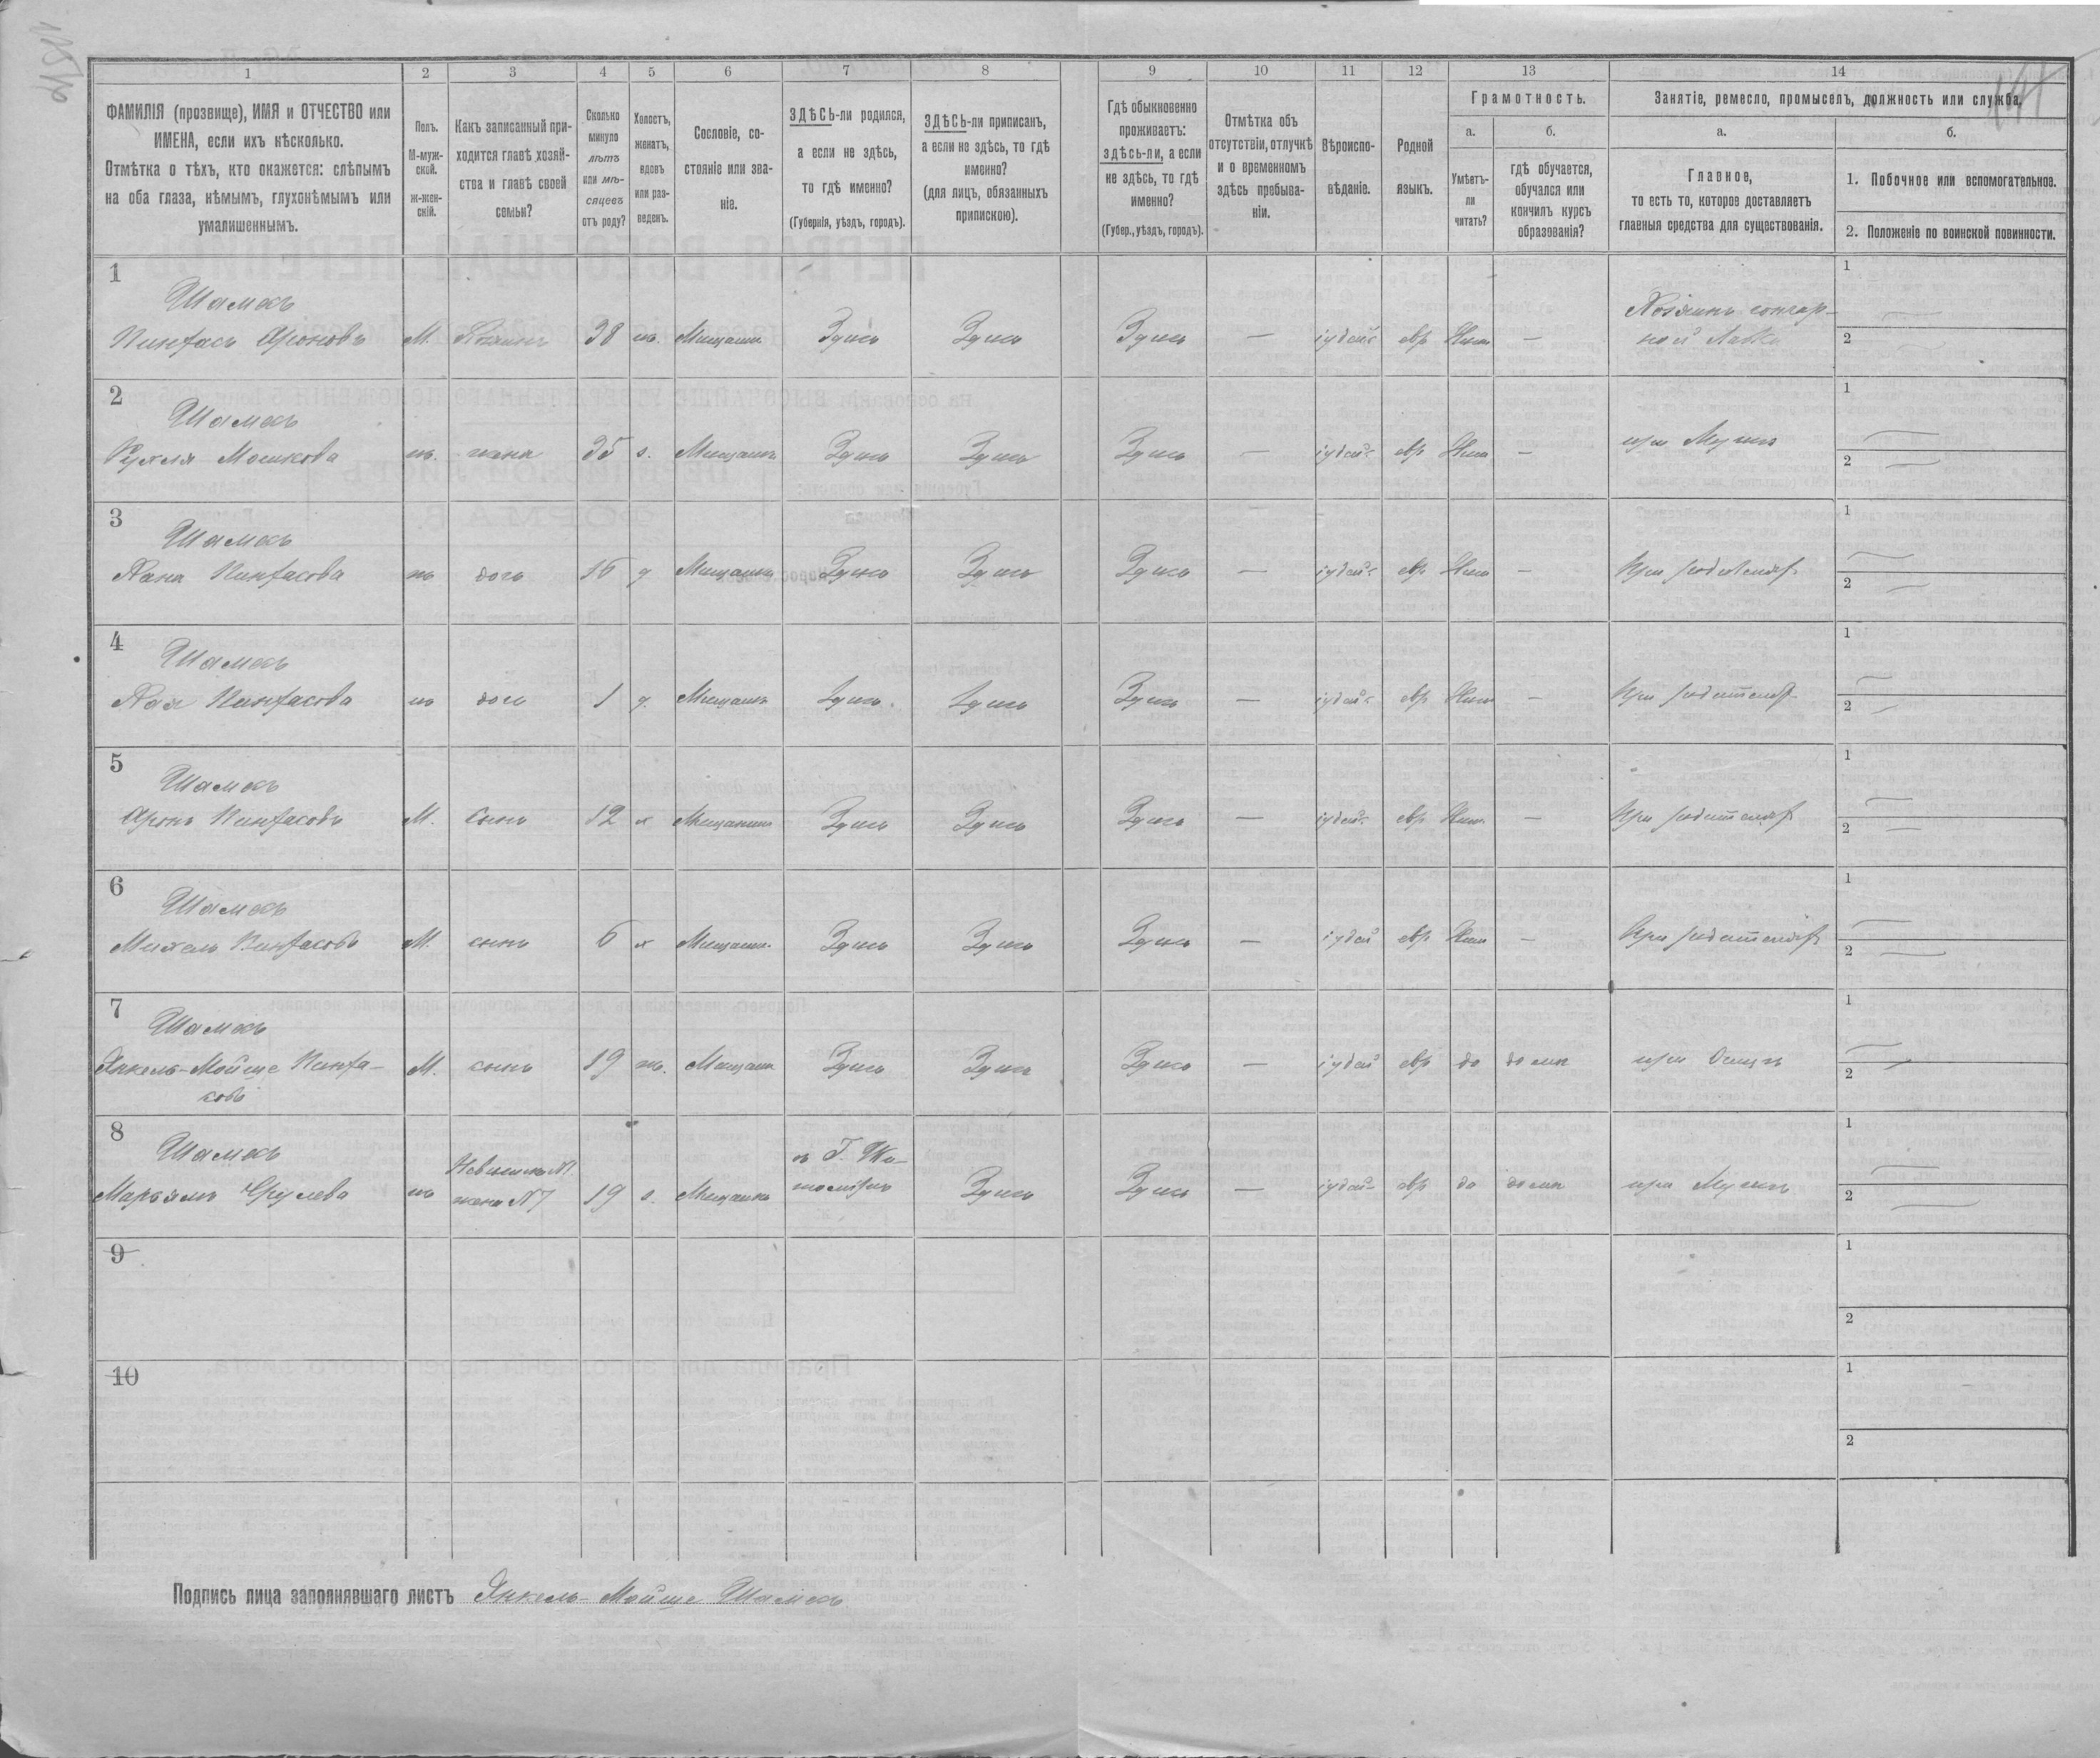 1
2
3
4
5
6
7
8
9
10
11
12
13
14
ФАМИЛІЯ (прозвище), ИМЯ и ОТЧЕСТВО или
ИМЕНА, если ихъ нѣсколько.
Отмѣтка о тѣхъ, кто окажется: слѣпымъ
на оба глаза, нѣмымъ, глухонѣмымъ или
умалишеннымъ.
Полъ.
М-муж-
ской.
ж-жен-
скій.
Какъ записанный при-
ходится главѣ хозяй-
ства и главѣ своей
семьи?
Сколько
минуло
лѣтъ
или мѣ-
сяцевъ
отъ роду?
Холостъ,
женатъ,
вдовъ
или раз-
веденъ.
Сословіе, со-
стояніе или зва-
ніе.
ЗДѢСЬ-ли родился,
а если не здѣсь,
то гдѣ именно?
(Губернія, уѣздъ, городъ).
ЗДѢСЬ-ли приписанъ,
а если не здѣсь, то гдѣ
именно?
(для лицъ, обязанныхъ
припискою).
Гдѣ обыкновенно
проживаетъ:
здѣсь-ли, а если
не здѣсь, то гдѣ
именно?
(Губер., уѣздъ, городъ).
Отмѣтка объ
отсутствіи, отлучкѣ
и о временномъ
здѣсь пребыва-
ніи.
Вѣроиспо-
вѣданіе.
Родной
языкъ.
Грамотность.
а.
Умѣетъ-
ли
читать?
б.
гдѣ обучается,
обучался или
кончилъ курсъ
образованія?
Занятіе, ремесло, промыселъ, должность или служба.
а.
Главное,
то есть то, которое доставляетъ
главныя средства для существованія.
б.
1. Побочное или вспомогательное.
2. Положеніе по воинской повинности.
1
Шамесъ
Пинхасъ Ароновъ М. Хозяинъ 38 ж. Мещанин Здѣсь Здѣсь Здѣсь — іудейс евр Нѣтъ —
1
2
2
Шамесъ
Рухля Мошкова ж. жена 35 з. Мещанка Здѣсь Здѣсь Здѣсь — іудейс евр Нѣтъ — при Мужѣ
1
2
3
Шамесъ
Хана Пинхасова ж дочь 16 д Мещанка Здѣсь Здѣсь Здѣсь — іудейс евр Нѣтъ — При родителях
1
2
4
Шамесъ
Пинхасова ж дочь 1 д. Мещанка Здѣсь Здѣсь Здѣсь — іудейс евр Нѣтъ — При родителях
1
2
5
Шамесъ
Аронъ Пинхасовъ М. Сынъ 12 х Мещанинъ Здѣсь Здѣсь Здѣсь — іудейс евр Нѣтъ — При родителях
1
2
6
Шамесъ
Михель Пинхасовъ М. сынъ 6 х Мещанин Здѣсь Здѣсь Здѣсь — іудей евр Нѣтъ — При родителях
1
2
7
Шамесъ
Янкель-Мойше Пинха-
совъ М. сынъ 19 ж. Мещанин Здѣсь Здѣсь Здѣсь — іудей евр да дома при Отцѣ
1
2
8
Шамесъ
Марьямъ ж Невѣстка №1 жена №7 19 з. Мещанка в Г. Жи-
томірѣ Здѣсь Здѣсь — іудей евр да дома при Мужѣ
1
2
9
1
2
10
1
2
Подпись лица заполнявшаго листъ Янкель-Мойше Шамесъ